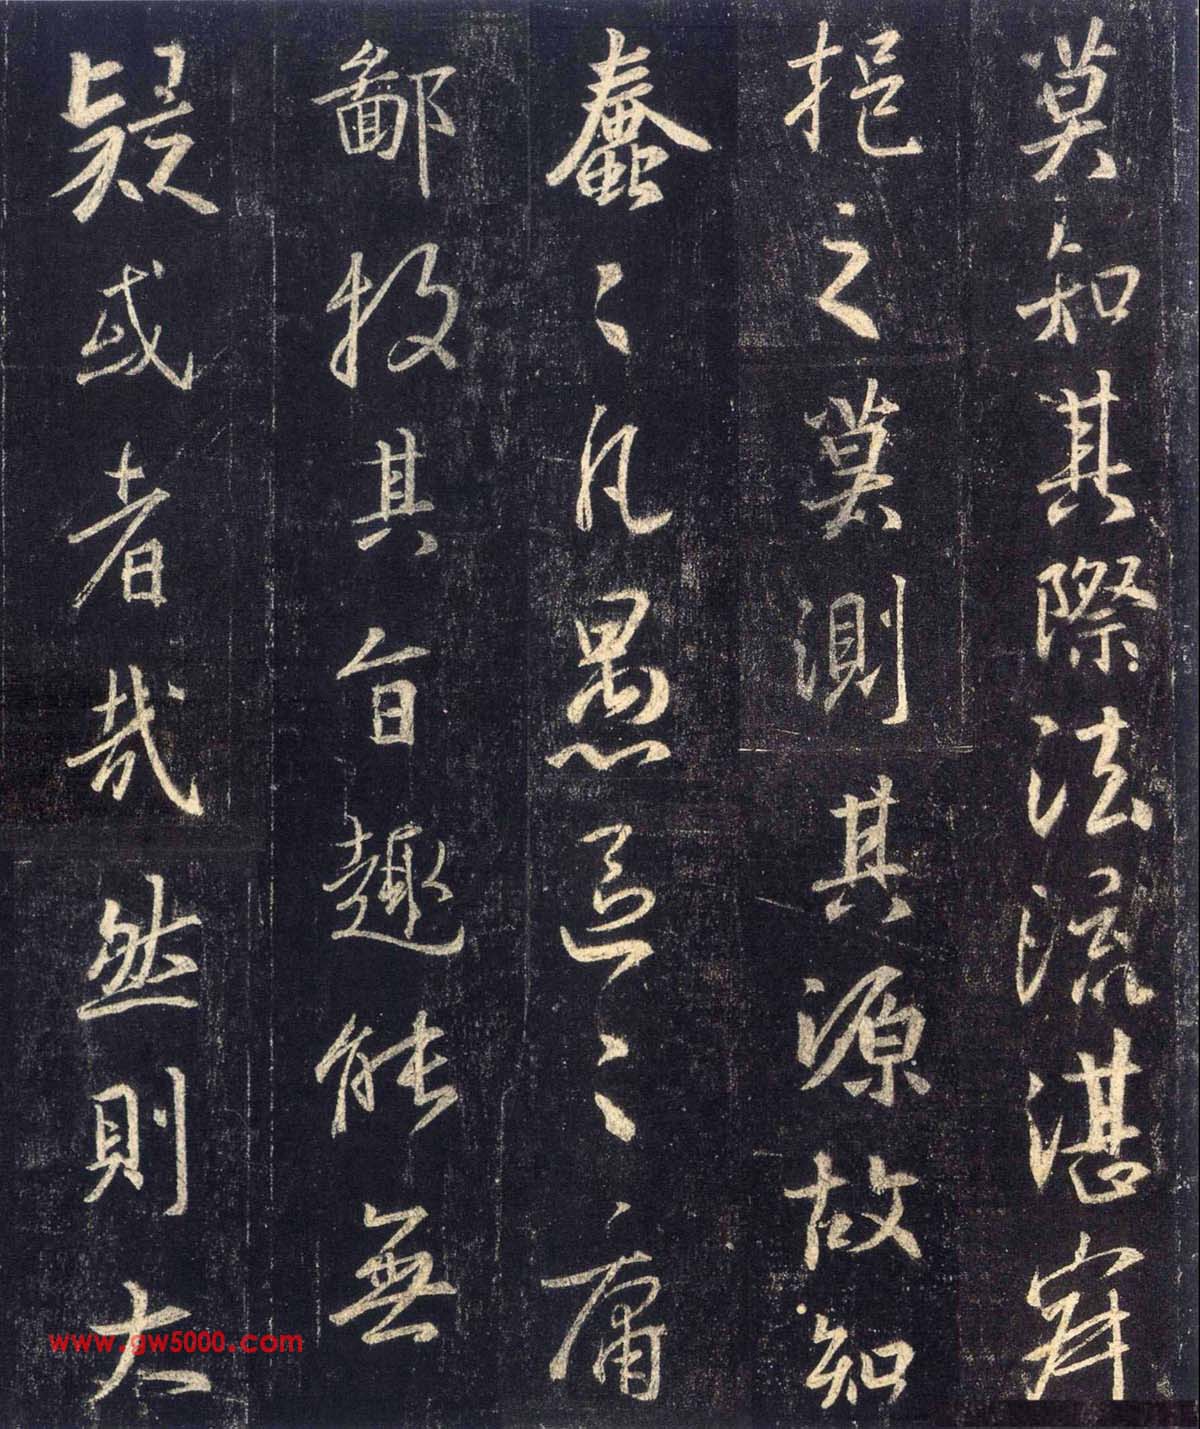 莫知其際法流湛寂
挹之莫測其源故知
蠢〻凡愚區〻庸
鄙投其旨趣能無
疑或者哉然則大
www.gw5000.com